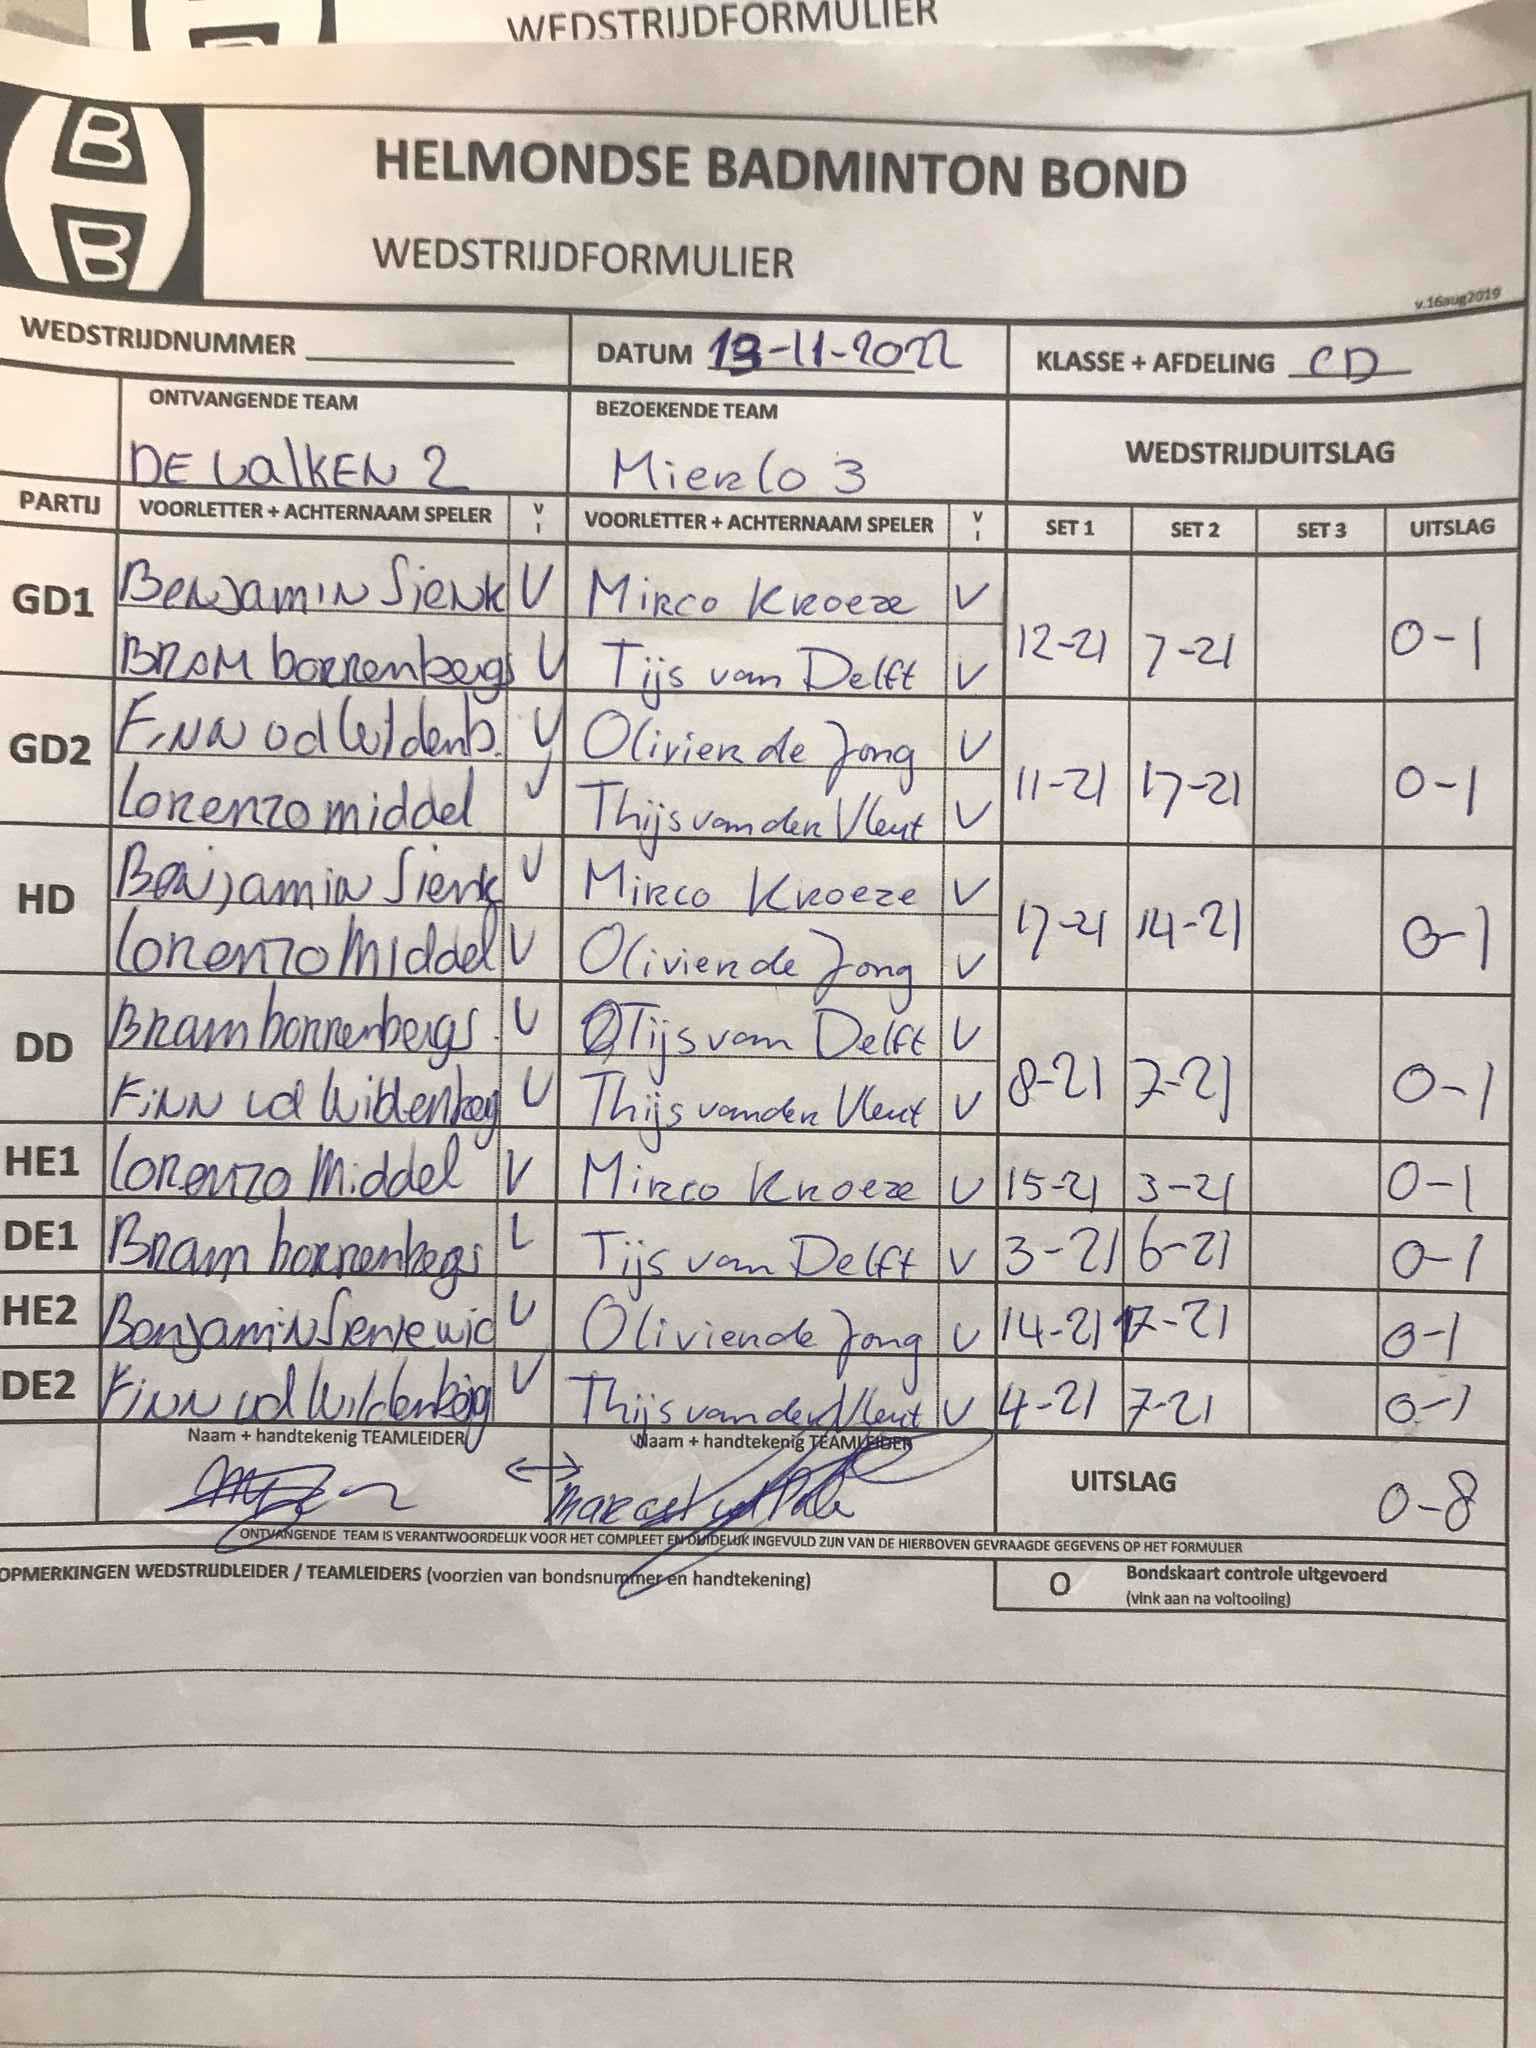 WEDSTRIJDFORMULIER
B
B
HELMONDSE BADMINTON BOND
WEDSTRIJDFORMULIER
v.16aug2019
WEDSTRIJDNUMMER DATUM 13-11-2022 KLASSE + AFDELING CD
ONTVANGENDE TEAM BEZOEKENDE TEAM WEDSTRIJDUITSLAG
DE ValKEN 2 Mierlo 3
PARTIJ VOORLETTER + ACHTERNAAM SPELER V I VOORLETTER + ACHTERNAAM SPELER V I SET 1 SET 2 SET 3 UITSLAG
GD1 Benjamin Sienk V Mirco Kroeze V 12-21 7-21 0-1
Bram borrenbergs V Tijs van Delft V
GD2 Finn vd Wildenb. V Olivier de Jong V 11-21 17-21 0-1
Lorenzo middel V Thijs van der Vleut V
HD Benjamin Sienk V Mirco Kroeze V 17-21 14-21 0-1
Lorenzo Middel V Olivier de Jong V
DD Bram borrenbergs. V Tijs van Delft V 8-21 7-21 0-1
Finn vd Wildenberg V Thijs van der Vleut V
HE1 Lorenzo Middel V Mirco Kroeze V 15-21 3-21 0-1
DE1 Bram borrenbergs L Tijs van Delft V 3-21 6-21 0-1
HE2 Benjamin Sienkewic V Olivier de Jong V 14-21 17-21 0-1
DE2 Finn vd Wildenberg V Thijs van der Vleut V 4-21 7-21 0-1
Naam + handtekenig TEAMLEIDER Naam + handtekenig TEAMLEIDER UITSLAG 0-8
ONTVANGENDE TEAM IS VERANTWOORDELIJK VOOR HET COMPLEET EN DUIDELIJK INGEVULD ZIJN VAN DE HIERBOVEN GEVRAAGDE GEGEVENS OP HET FORMULIER
OPMERKINGEN WEDSTRIJDLEIDER / TEAMLEIDERS (voorzien van bondsnummer en handtekening) O Bondskaart controle uitgevoerd
(vink aan na voltooiing)